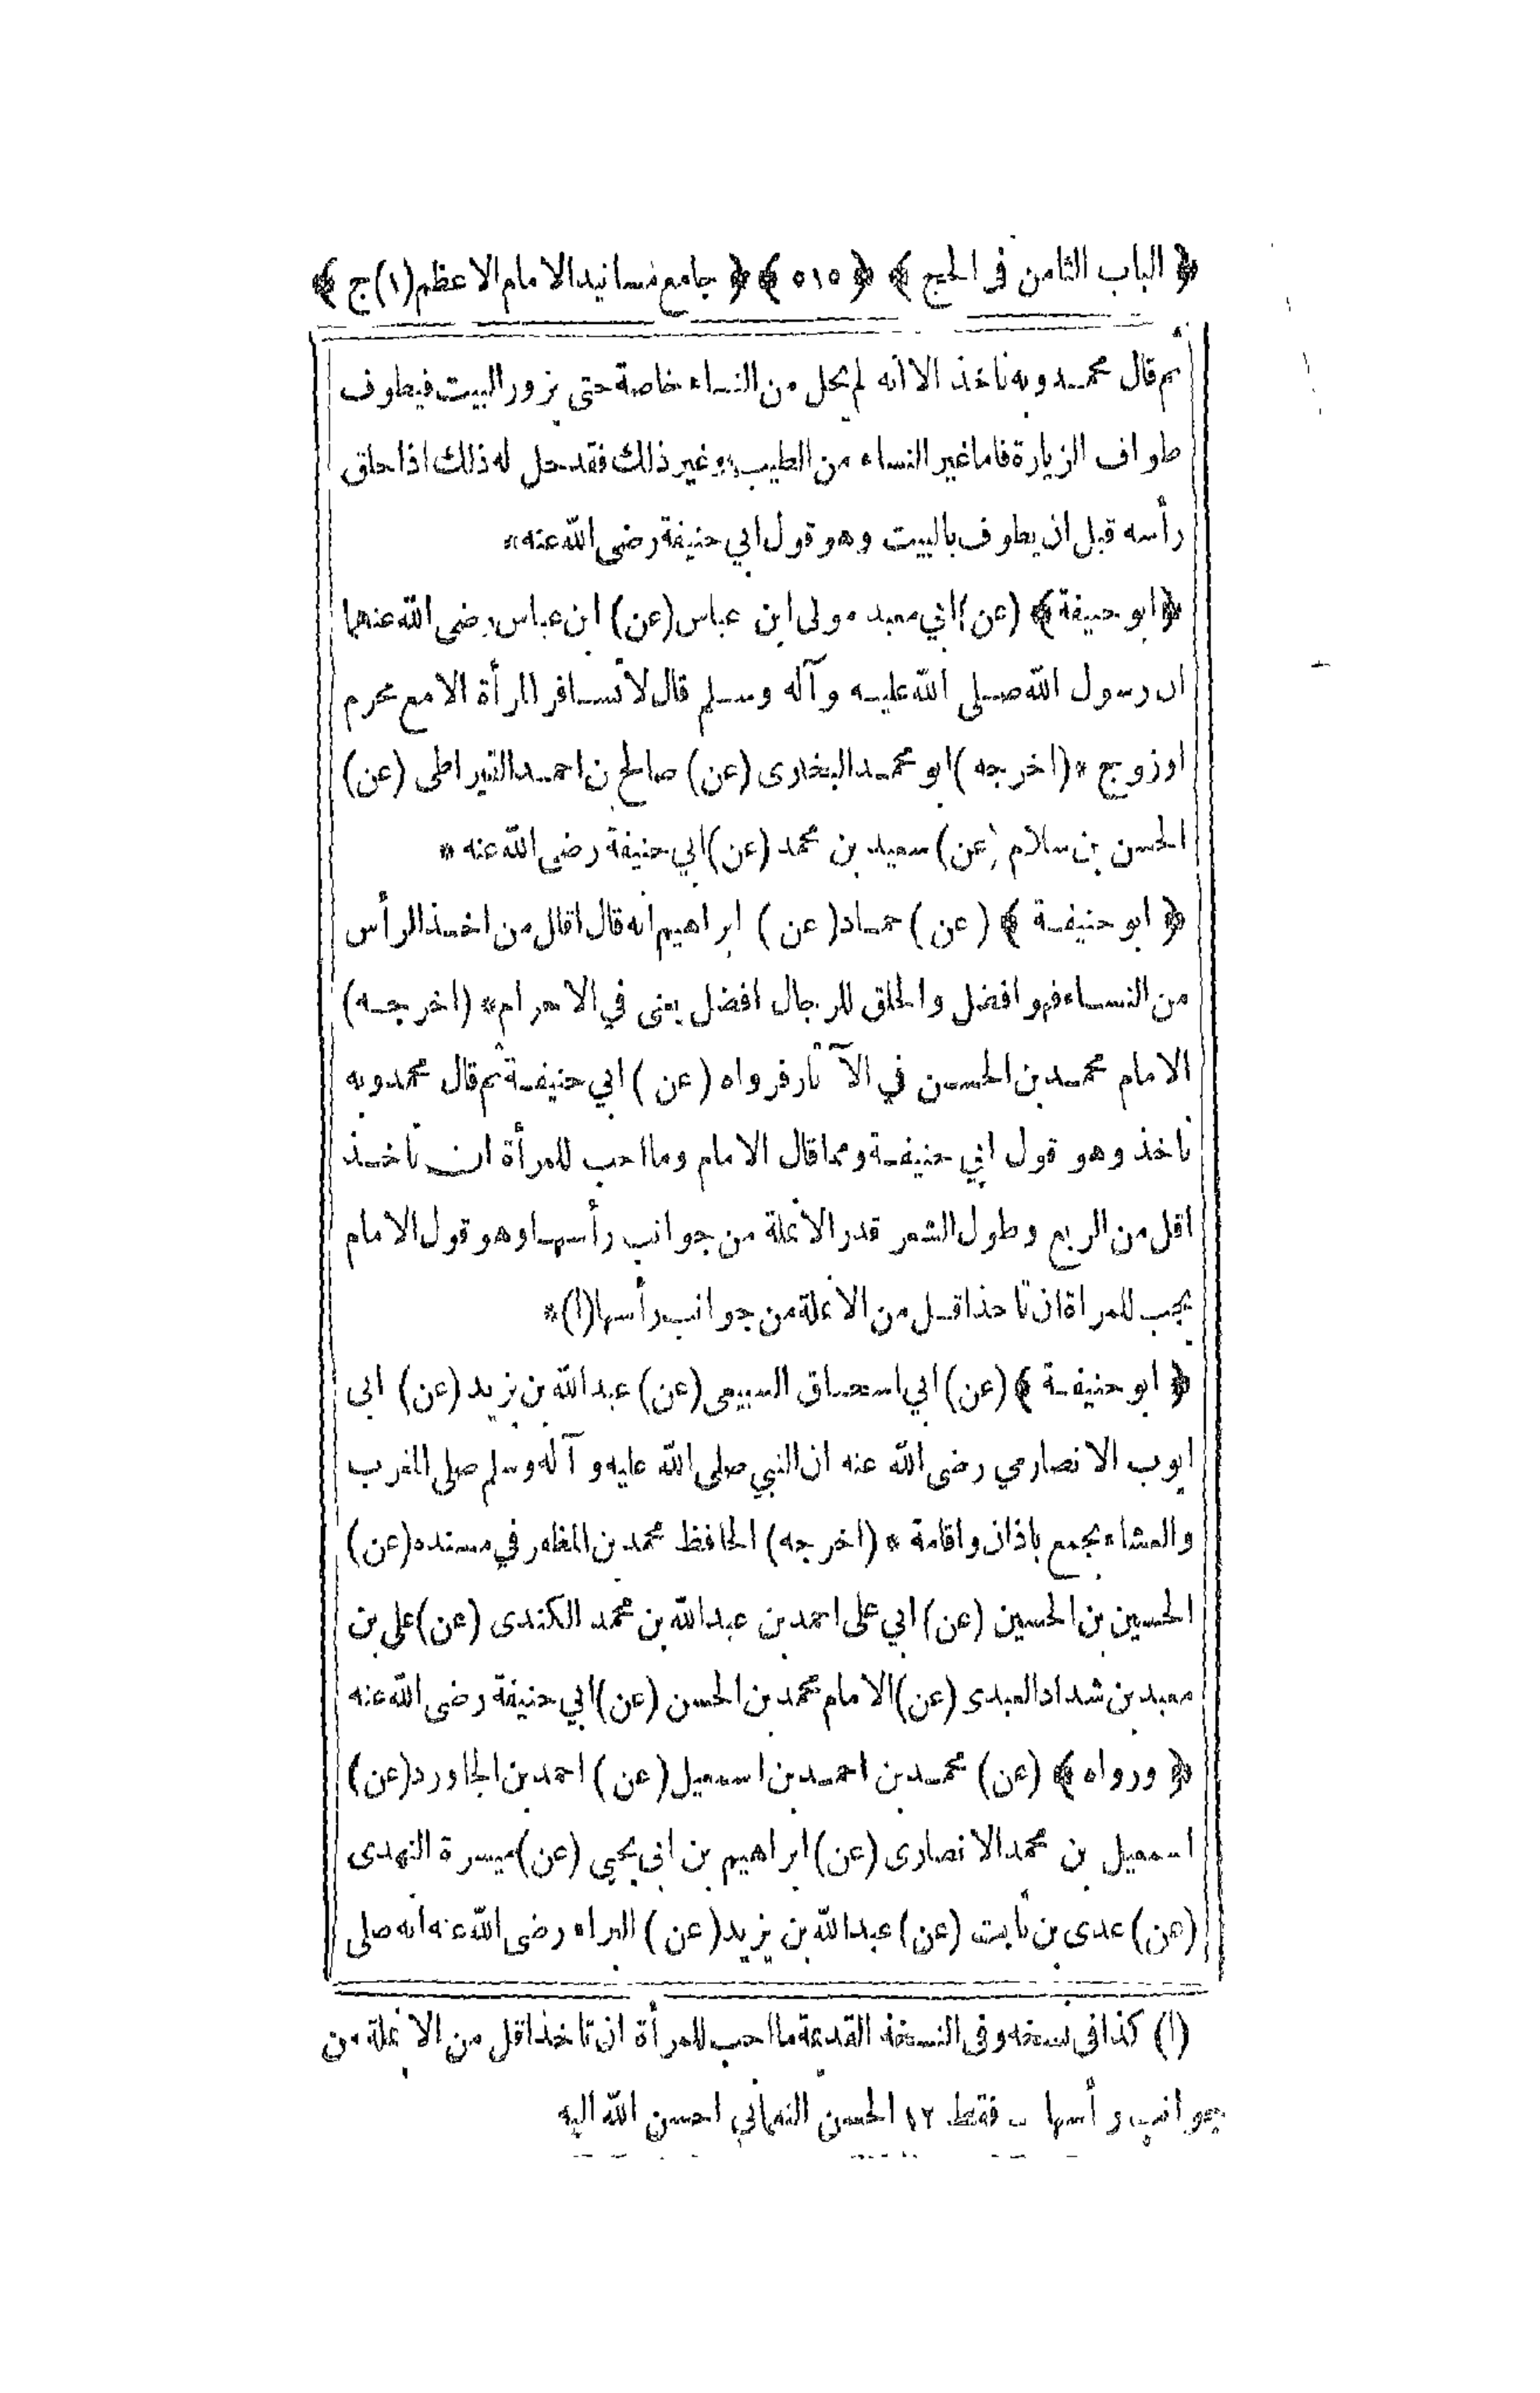 ﴿ الباب الثامن فى الحج ﴾ ﴿ ٥١٥ ﴾ ﴿ جامع مسانيد الامام الاعظم (١) ج ﴾
ثم قال محمد وبه ناخذ الا انه لم يحل من النساء خاصة حتى يزور البيت فيطوف
طواف الزيارة فاما غير النساء من الطيب وغير ذلك فقد حل له ذلك اذا حلق
رأسه قبل ان يطوف بالبيت وهو قول ابي حنيفة رضى الله عنه *
﴿ ابو حنيفة ﴾ (عن) ابي معبد مولى ابن عباس (عن) ابن عباس رضى الله عنهما
ان رسول الله صلى الله عليه وآله وسلم قال لا تسافر المرأة الا مع محرم
او زوج * (اخرجه) ابو محمد البخارى (عن) صالح بن احمد القيراطى (عن)
الحسن بن سلام (عن) سعيد بن محمد (عن) ابي حنيفة رضى الله عنه *
﴿ ابو حنيفة ﴾ (عن) حماد (عن) ابراهيم انه قال اقال من اخذ الرأس
من النساء فهو افضل والحلق للرجال افضل يعنى في الاحرام * (اخرجه)
الامام محمد بن الحسن في الآثار فرواه (عن) ابي حنيفة ثم قال محمد وبه
ناخذ وهو قول ابي حنيفة ومما قال الامام وما احب للمرأة ان تاخذ
اقل من الربع وطول الشعر قدر الانملة من جوانب رأسها وهو قول الامام
يجب للمراة ان تاخذ اقل من الانملة من جوانب رأسها (١) *
﴿ ابو حنيفة ﴾ (عن) ابي اسحاق السبيعى (عن) عبد الله بن يزيد (عن) ابى
ايوب الانصارى رضى الله عنه ان النبي صلى الله عليه وآله وسلم صلى المغرب
والعشاء بجمع باذان واقامة * (اخرجه) الحافظ محمد بن المظفر في مسنده (عن)
الحسين بن الحسين (عن) ابي على احمد بن عبد الله بن محمد الكندى (عن) على بن
معبد بن شداد العبدى (عن) الامام محمد بن الحسن (عن) ابي حنيفة رضى الله عنه
﴿ ورواه ﴾ (عن) محمد بن احمد بن اسمعيل (عن) احمد بن الجاورد (عن)
اسمعيل بن محمد الانصارى (عن) ابراهيم بن ابى يحيى (عن) ميسرة النهدى
(عن) عدى بن ثابت (عن) عبد الله بن يزيد (عن) البراء رضى الله عنه انه صلى
(١) كذا فى نسخه وفى النسخة القديمة ما احب للمرأة ان تاخذ اقل من الانملة من
جوانب رأسها - فقط ١٢ الحسن النعماني احسن الله اليه